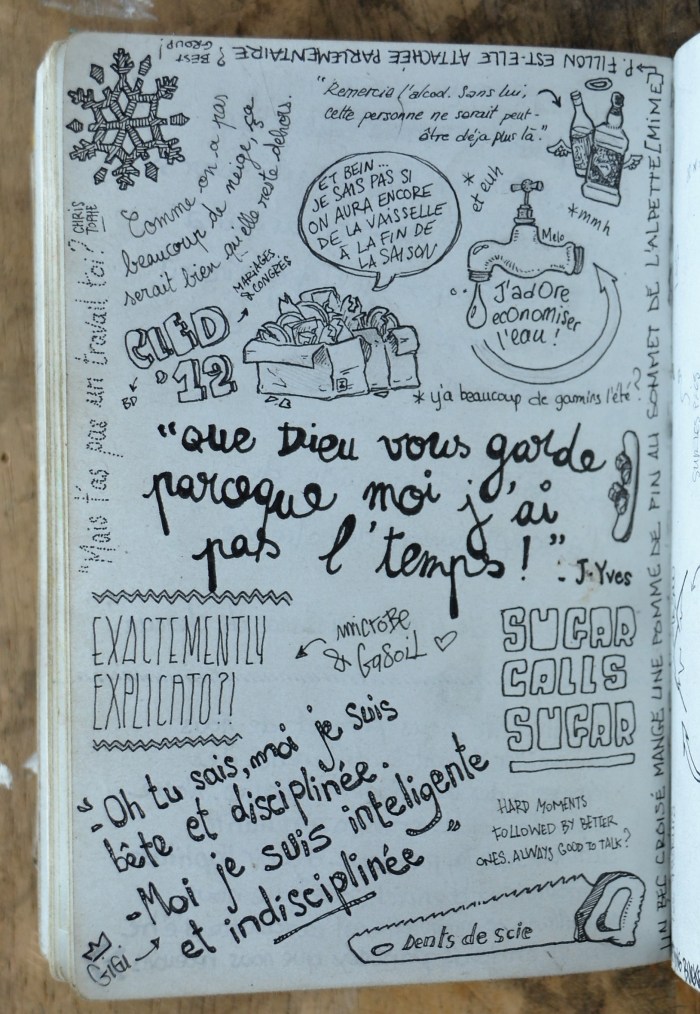 P. FILLON EST-ELLE ATTACHÉE PARLEMENTAIRE ?
BEST
GROUP!
"Remercia l'alcool. Sans lui,
cette personne ne sarait peut-
être déja plus là."
Comme on a pas
beaucoup de neige, ça
serait bien qu'elle reste dehors.
ET BEIN...
JE SAIS PAS SI
ON AURA ENCORE
DE LA VAISSELLE
À LA FIN DE
LA SAISON
* et euh
*mmh
Melo
J'adore
economiser
l'eau !
* y'a beaucoup de gamins l'été ?
MARIAGES
& CONGRÈS
CLED
'12
BD
"Mais t'as pas un travail toi?
CHRIS
TOPHE
"que Dieu vous garde
parceque moi j'ai
pas l'temps !"
- J-Yves
EXACTEMENTLY
EXPLICATO?!
microBe
& GaSoiL
SUGAR
CALLS
SUGAR
"- Oh tu sais, moi je suis
bête et disciplinée.
- Moi je suis inteligente
et indisciplinée "
GiGi
HARD MOMENTS
FOLLOWED BY BETTER
ONES. ALWAYS GOOD TO TALK?
Dents de scie
UN BEC CROISÉ MANGE UNE POMME DE PIN AU SOMMET DE L'ALPETTE [MIME]